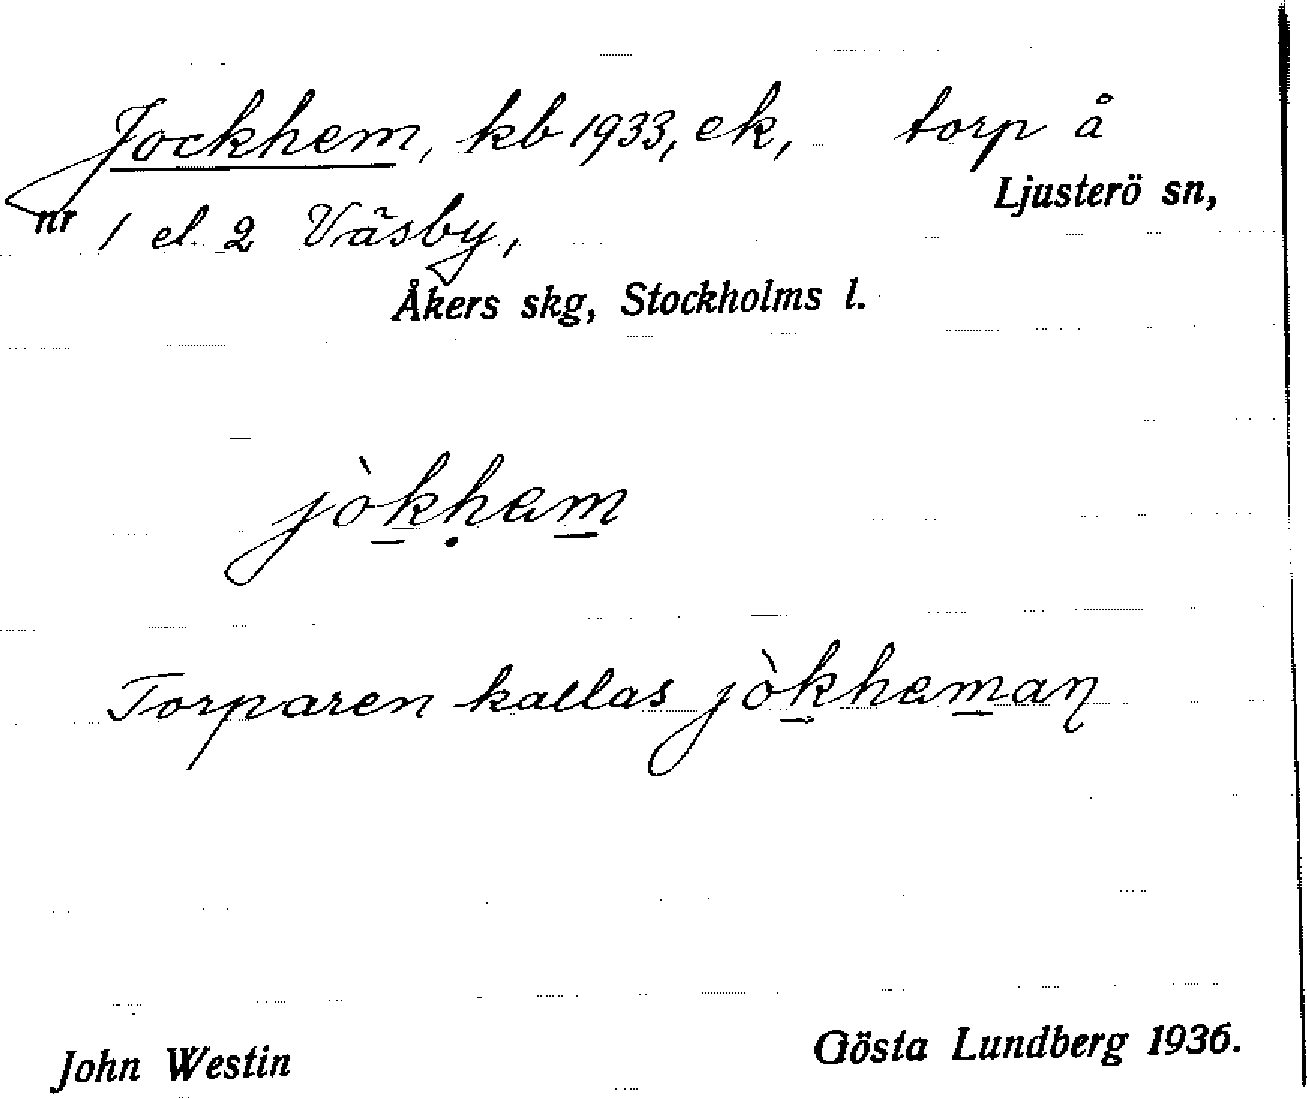 Jockhem, kb 1933, ek, torp å
nr 1 el. 2 Väsby, Ljusterö sn,
Åkers skg, Stockholms l.
jòk̠ḥam̠
Torparen kallas jòk̠ham̠aꞃ
John Westin Gösta Lundberg 1936.